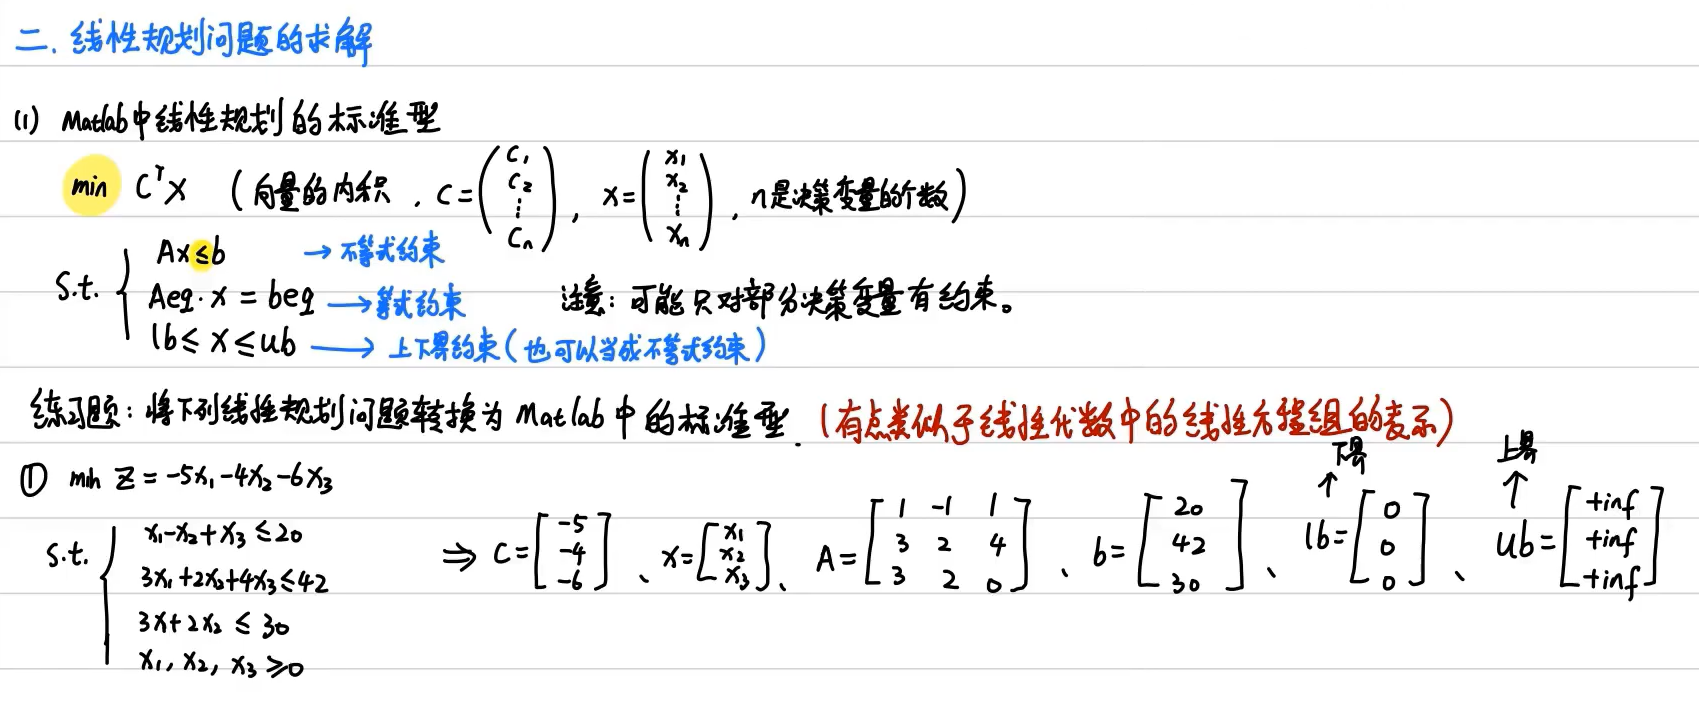 二. 线性规划问题的求解
(1) Matlab中线性规划的标准型
min CᵀX (向量的内积, C=(C₁ C₂ ⋮ Cₙ), X=(x₁ x₂ ⋮ xₙ), n是决策变量的个数)
S.t. { Ax≤b → 不等式约束
Aeq·x = beq → 等式约束 注意: 可能只对部分决策变量有约束。
lb≤x≤ub → 上下界约束(也可以当成不等式约束)
练习题: 将下列线性规划问题转换为 Matlab 中的标准型. (有点类似于线性代数中的线性方程组的表示)
① min Z = -5x₁-4x₂-6x₃
S.t. { x₁-x₂+x₃≤20
3x₁+2x₂+4x₃≤42
3x+2x₂ ≤ 30
x₁, x₂, x₃ ≥0
⇒ C=[-5 -4 -6]、x=[x₁ x₂ x₃]、A=[1 -1 1 3 2 4 3 2 0]、b=[20 42 30]、lb=[0 0 0]、ub=[+inf +inf +inf]
↑ 下界
↑ 上界